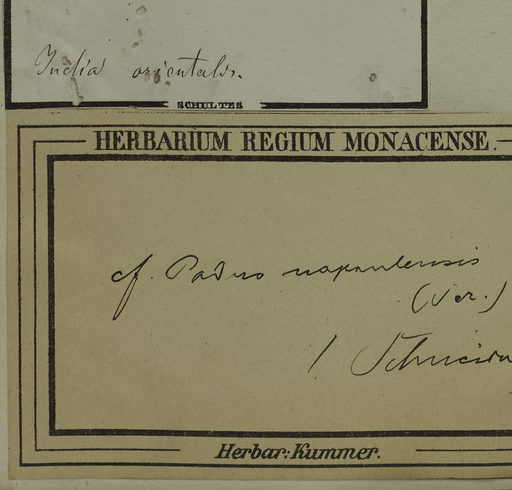 India orientalis.
SCHULTES
HERBARIUM REGIUM MONACENSE.
cf. Padus napaulensis
(Ser.)
Schneider
Herbar: Kummer.